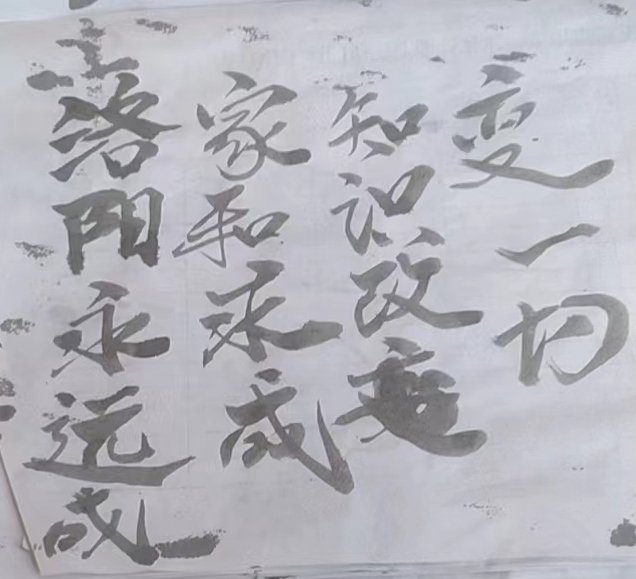 洛阳永远成
家和成
知识改
变一切